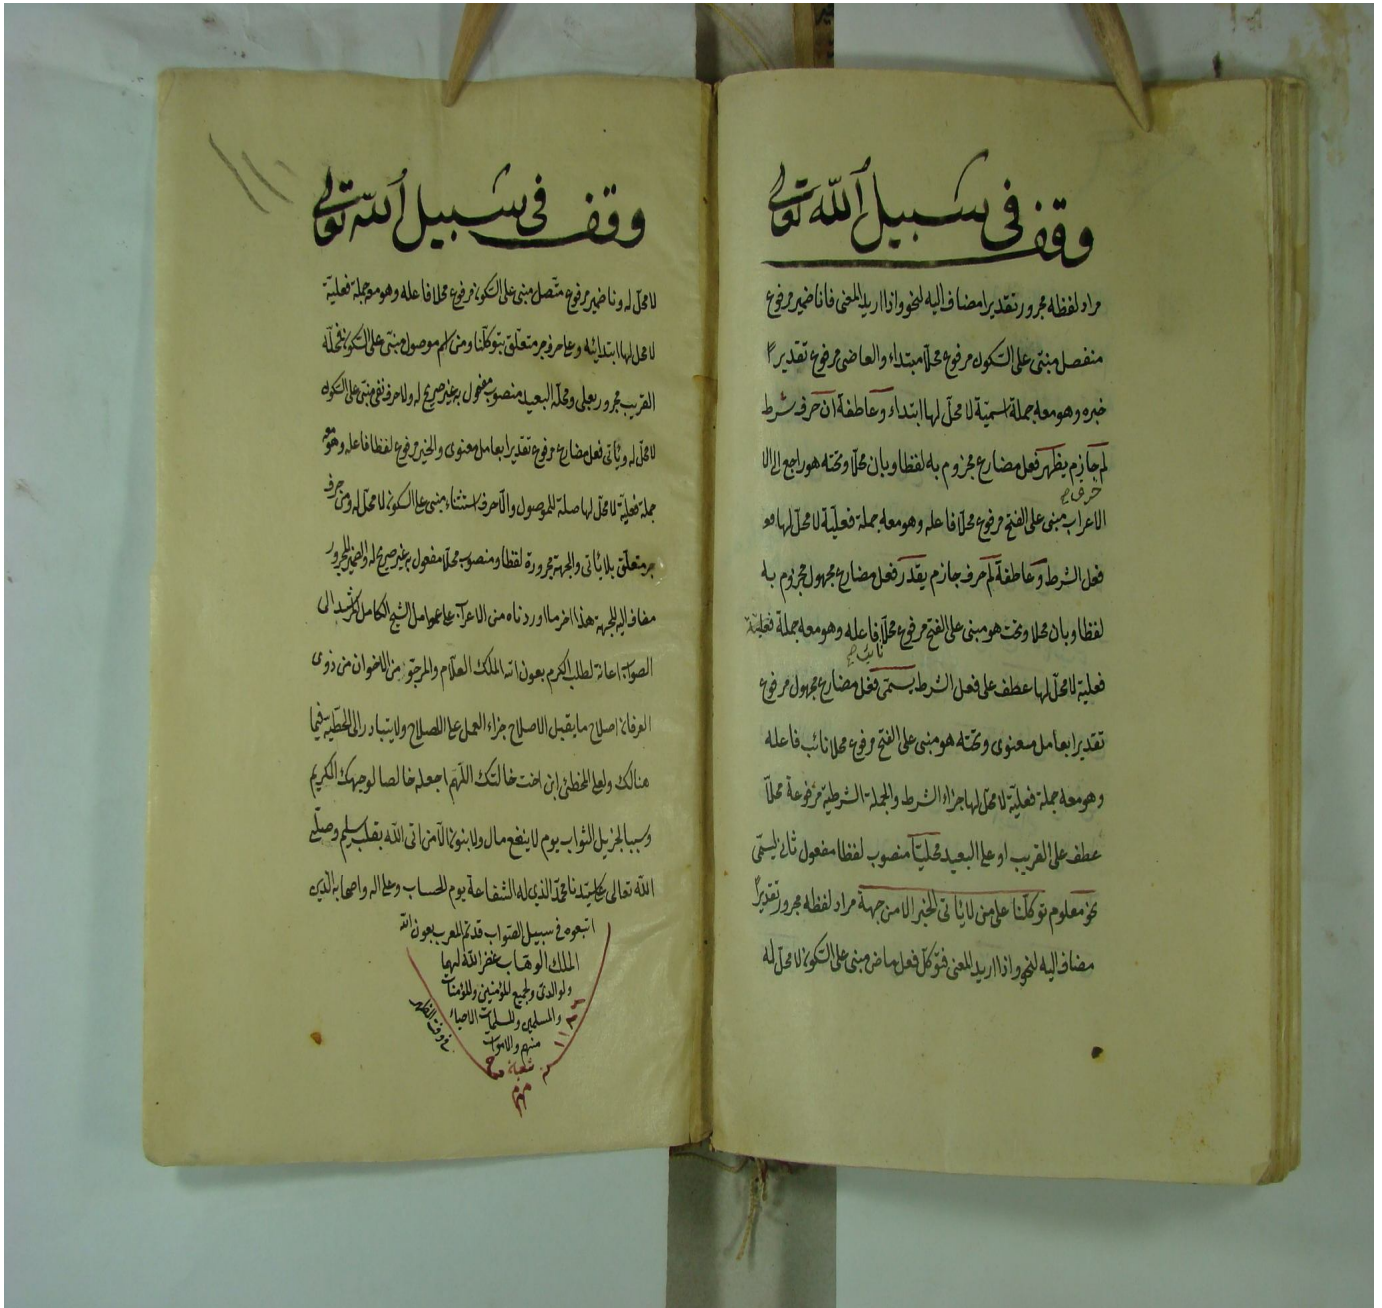 وقف فى سبيل الله تعالى
مراد لفظه مجرور تقديرا مضاف اليه لنحو واذا اريد المعنى فانا ضمير مرفوع
منفصل مبنى على السكون مرفوع محلا مبتداء والعاصى مرفوع تقديرا
خبره وهو معه جملة اسمية لا محل لها ابتداء وعاطفة ان حرف شرط
لم جازم يظهر فعل مضارع مجزوم به لفظا وبان محلا وتحته هو راجع الى الا
الاعراب مبنى على الفتح مرفوع محلا فاعله وهو معه جملة فعلية لا محل لها
فعل الشرط وعاطفة لم حرف جازم يقدر فعل مضارع مجهول مجزوم به
لفظا وبان محلا وتحت هو مبنى على الفتح مرفوع محلا فاعله وهو معه جملة فعلية
نائب صح
فعلية لا محل لها عطف على فعل الشرط يسمى فعل مضارع مجهول مرفوع
تقديرا بعامل معنوى وتحته هو مبنى على الفتح مرفوع محلا نائب فاعله
وهو معه جملة فعلية لا محل لها جزاء الشرط والجملة الشرطية مرفوعة محلا
عطف على القريب او على البعيد محليا منصوب لفظا مفعول ثان ليسمى
نحو معلوم توكلنا على من لا يأتى الخير الا من جهة مراد لفظه مجرور تقديرا
مضاف اليه لنحو واذا اريد المعنى فتوكل فعل ماض مبنى على السكون لا محل له
وقف فى سبيل الله تعالى
لا محل له ونا ضمير مرفوع متصل مبنى على السكون مرفوع محلا فاعله وهو معه جملة فعلية
لا محل لها ابتدائية وعلى حرف جر متعلق بتوكلنا ومن اسم موصول مبنى على السكون فمحله
القريب مجرور بعلى ومحله البعيد منصوب مفعول به غير صريح له ولا حرف نفى مبنى على السكون
لا محل له ويأتى فعل مضارع مرفوع تقديرا بعامل معنوى والخير مرفوع لفظا فاعله وهو معه
جملة فعلية لا محل لها صلة للموصول والا حرف استثناء مبنى على السكون لا محل له ومن حرف
جر متعلق بلا يأتى والجهة مجرورة لفظا ومنصوب محلا مفعول به غير صريح له والضمير المجرور
مضاف اليه للجهة هذا اخر ما اوردناه من الاعراب على عوامل الشيخ الكامل المرشد الى
الصواب اعانة لطلب الكرم بعون الله الملك العلام والمرجو من الاخوان من ذوى
العرفان اصلاح ما يقبل الاصلاح جزاء العمل على الصلاح ولا يتبادر الى التخطئة فيما
هنالك ولعل المخطئ ابن اخت خالتك اللهم اجعله خالصا لوجهك الكريم
وسببا لجزيل الثواب يوم لا ينفع مال ولا بنون الا من اتى الله بقلب سليم وصلى
الله تعالى على سيدنا محمد الذى له الشفاعة يوم الحساب وعلى اله واصحابه الذين
اتبعوه فى سبيل الصواب قد تم المعرب بعون الله
الملك الوهاب غفر الله لهما
ولوالدى ولجميع المؤمنين والمؤمنات
والمسلمين والمسلمات الاحياء
منهم والاموات
فى وقت الظهر